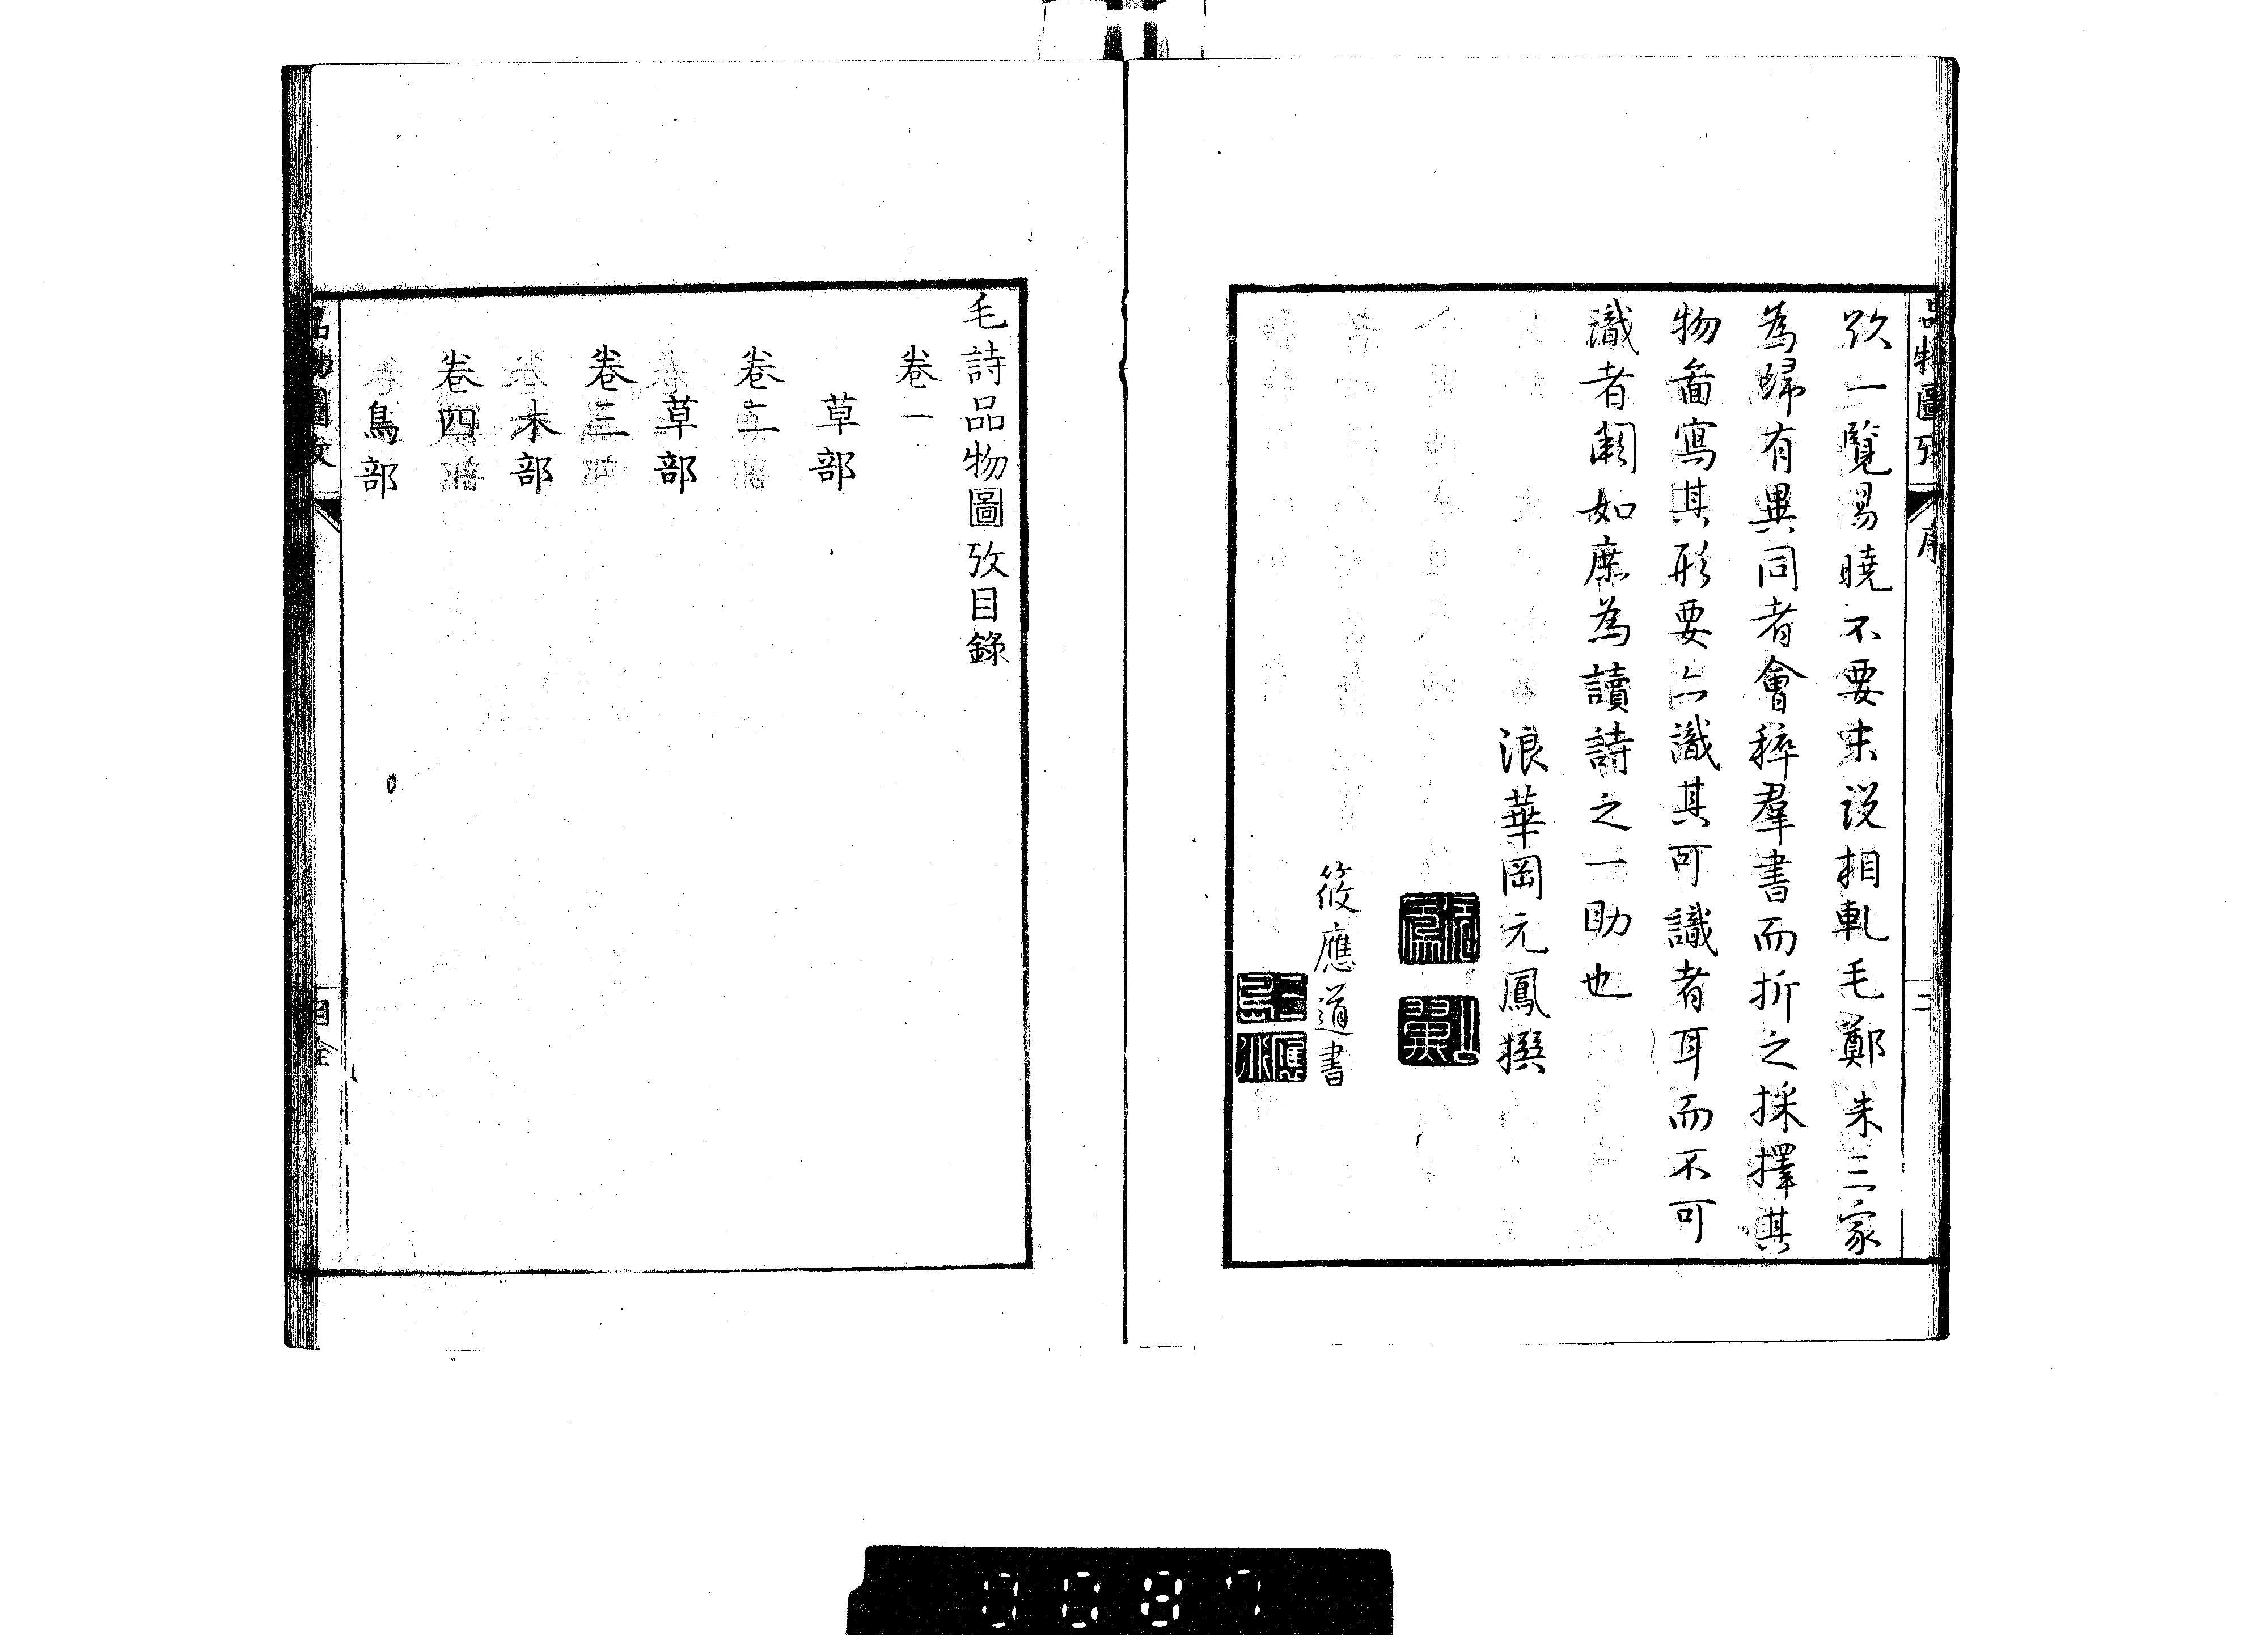 品物圖攷　序　二
欲一覽易曉不要末説相軋毛鄭朱三家
為歸有異同者會稡羣書而折之採擇其
物啚寫其形要亦識其可識者耳而不可
識者闕如庶為讀詩之一助也
浪華岡元鳳撰
筱應道書
毛詩品物圖攷目錄
卷一
草部
卷二
草部
卷三
木部
卷四
鳥部
品物圖攷　目全